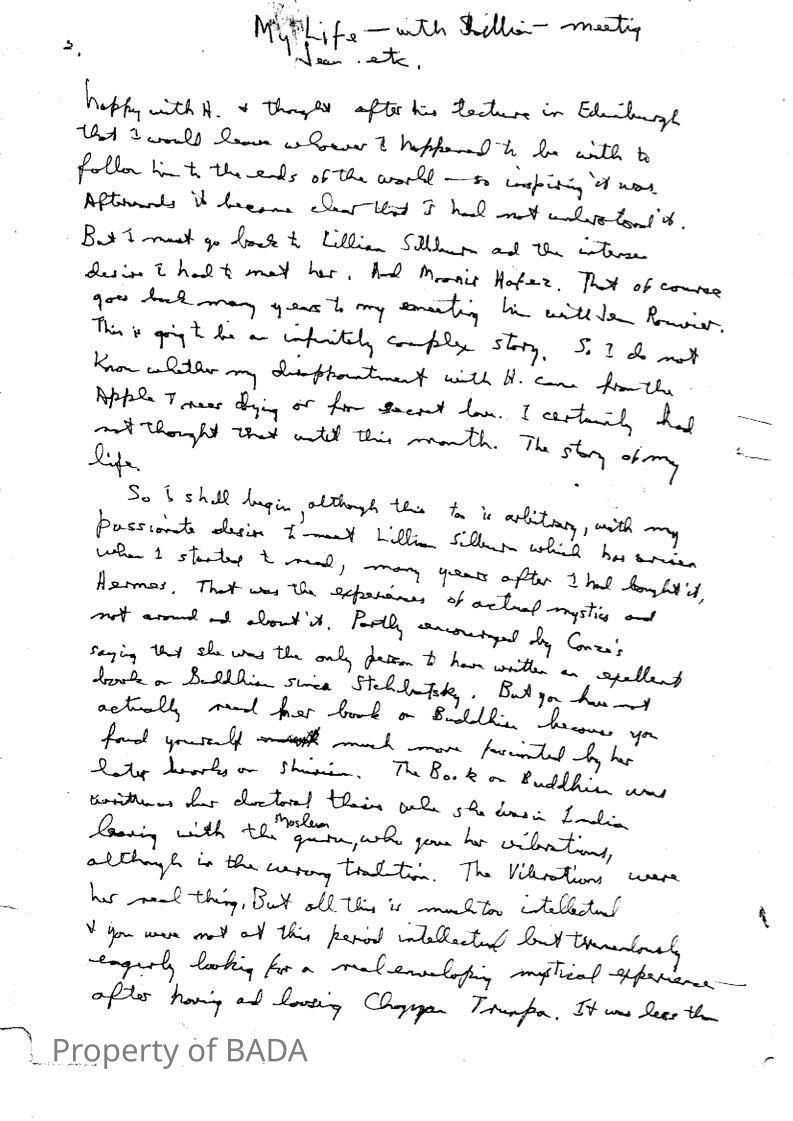 My Life — with Lillian — meeting
2.
Jean . etc.
happy with H. & thought after his lecture in Edinburgh
that I would leave whoever I happened to be with to
follow him to the ends of the world — so inspiring it was.
Afterwards it became clear that I had not understood it.
But I must go back to Lillian Silburn and the intense
desire I had to meet her. And Moonis Hafez. That of course
goes back many years to my meeting him with Jean Rouvier.
This is going to be an infinitely complex story. So I do not
know whether my disappointment with H. came from the
Apple T near dying or from secret love. I certainly had
not thought that until this month. The story of my
life.
So I shall begin, although this too is arbitrary, with my
passionate desire to meet Lillian Silburn which has arisen
when I started to read, many years after I had bought it,
Hermes. That was the experiences of actual mystics and
not around and about it. Partly encouraged by Conze's
saying that she was the only person to have written an expellent
book on Buddhism since Stcherbatsky. But you have not
actually read her book on Buddhism because you
found yourself much more fascinated by her
later books on Shivism. The Book on Buddhism was
written as her doctoral thesis while she was in India
leaving with the Moslem guru, who gave her vibrations,
although in the wrong tradition. The Vibrations were
her real thing, But all this is much too intellectual
& you were not at this period intellectual but tremendously
eagerly looking for a real enveloping mystical experience —
after having and loosing Chogyam Trungpa. It was less than
Property of BADA